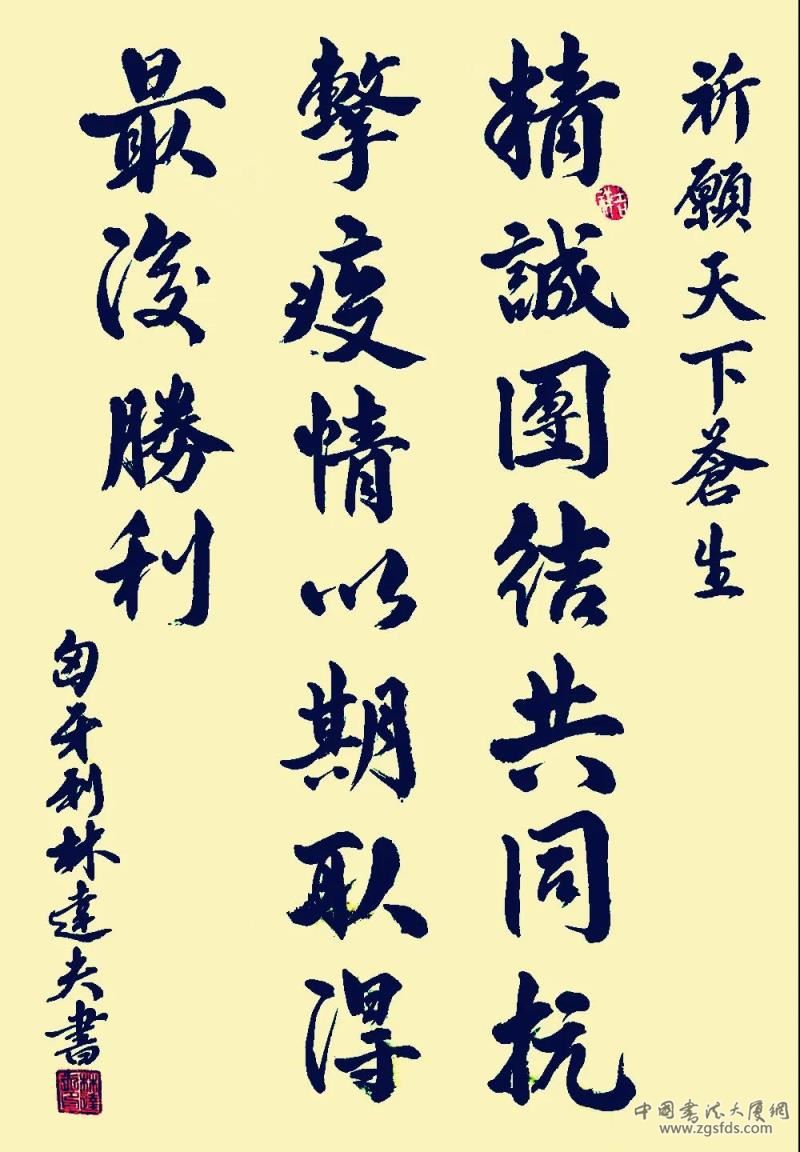 祈願天下蒼生
精誠團結共同抗
擊疫情以期取得
最後勝利
匈牙利林達夫書
中國書法大厦網
www.zgsfds.com